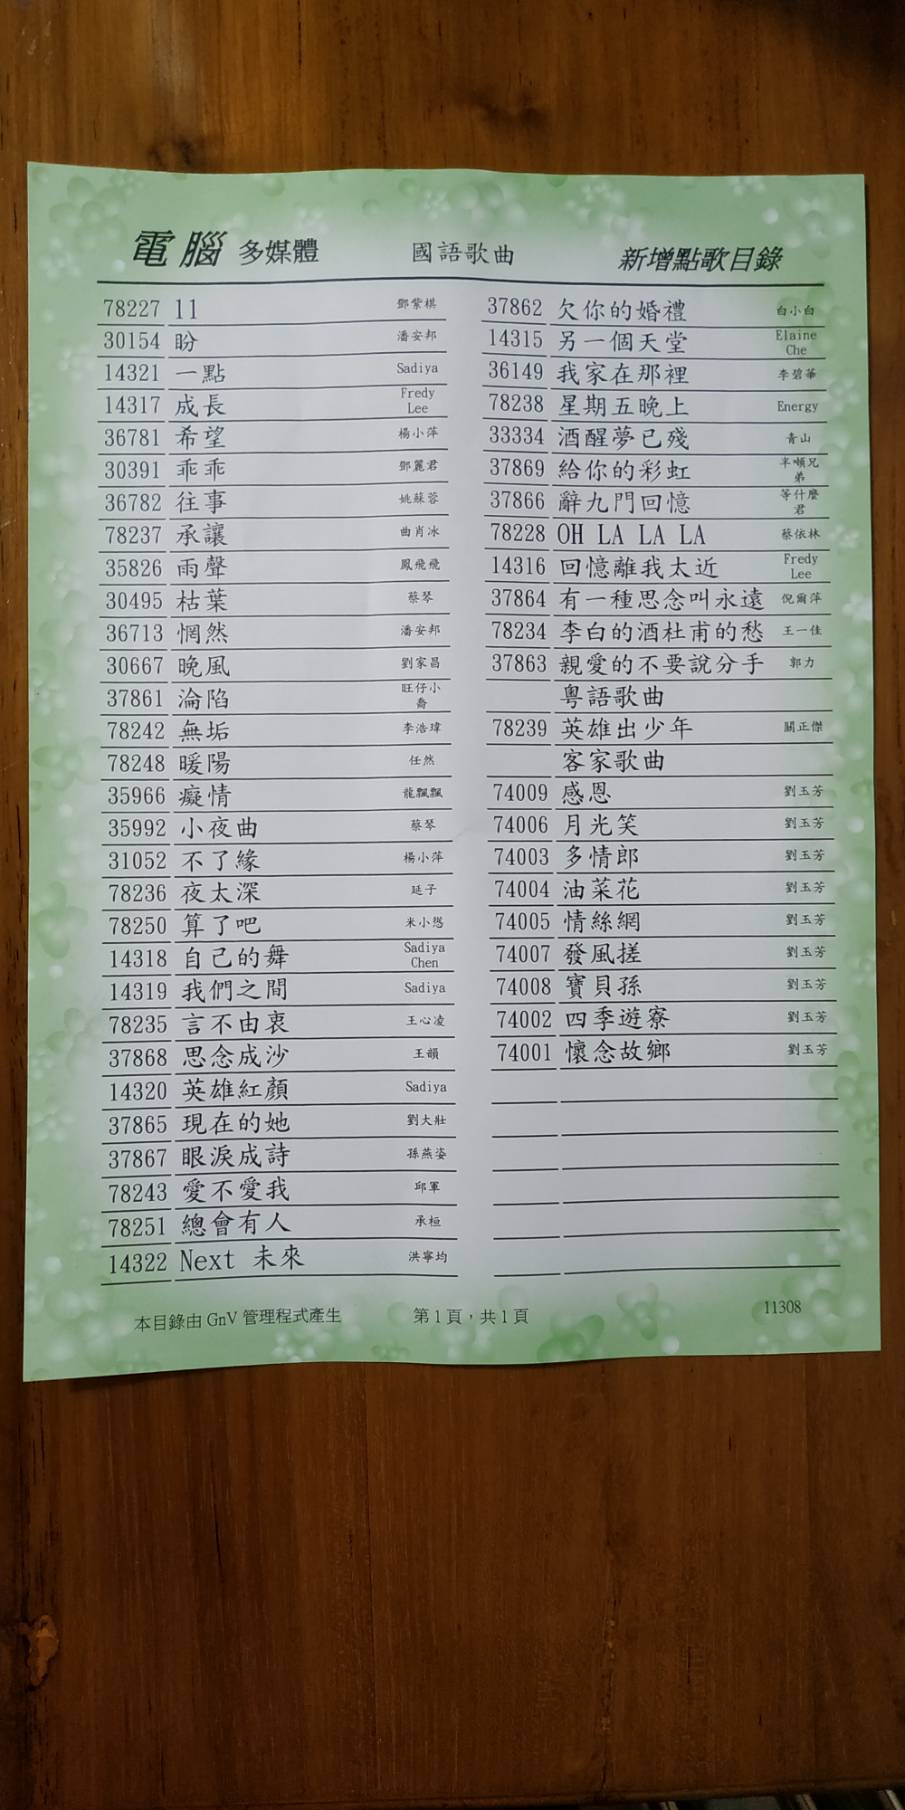 電腦 多媒體 國語歌曲 新增點歌目錄
78227 11 鄧紫棋
30154 盼 潘安邦
14321 一點 Sadiya
14317 成長 Fredy Lee
36781 希望 楊小萍
30391 乖乖 鄧麗君
36782 往事 姚蘇蓉
78237 承讓 曲肖冰
35826 雨聲 鳳飛飛
30495 枯葉 蔡琴
36713 惘然 潘安邦
30667 晚風 劉家昌
37861 淪陷 旺仔小喬
78242 無垢 李浩瑋
78248 暖陽 任然
35966 癡情 龍飄飄
35992 小夜曲 蔡琴
31052 不了緣 楊小萍
78236 夜太深 延子
78250 算了吧 米小
14318 自己的舞 Sadiya Chen
14319 我們之間 Sadiya
78235 言不由衷 王心凌
37868 思念成沙 王韻
14320 英雄紅顏 Sadiya
37865 現在的她 劉大壯
37867 眼淚成詩 孫燕姿
78243 愛不愛我 邱軍
78251 總會有人 承桓
14322 Next 未來 洪寧均
37862 欠你的婚禮 白小白
14315 另一個天堂 Elaine Che
36149 我家在那裡 李碧華
78238 星期五晚上 Energy
33334 酒醒夢已殘 青山
37869 給你的彩虹 半噸兄弟
37866 辭九門回憶 等什麼君
78228 OH LA LA LA 蔡依林
14316 回憶離我太近 Fredy Lee
37864 有一種思念叫永遠 倪爾萍
78234 李白的酒杜甫的愁 王一佳
37863 親愛的不要說分手 郭力
粵語歌曲
78239 英雄出少年 關正傑
客家歌曲
74009 感恩 劉玉芳
74006 月光笑 劉玉芳
74003 多情郎 劉玉芳
74004 油菜花 劉玉芳
74005 情絲網 劉玉芳
74007 發風搓 劉玉芳
74008 寶貝孫 劉玉芳
74002 四季遊寮 劉玉芳
74001 懷念故鄉 劉玉芳
本目錄由 GnV 管理程式產生 第1頁，共1頁 11308